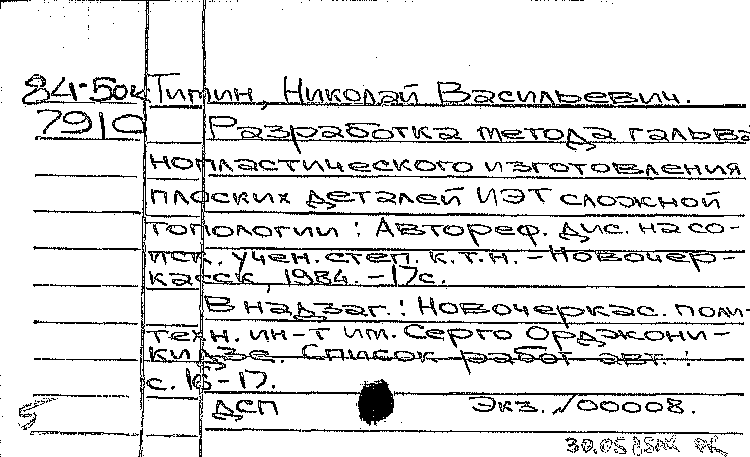 84-5ок Тимин, Николай Васильевич.
7910 Разработка метода гальва
нопластического изготовления
плоских деталей ИЭТ сложной
топологии : Автореф. дис. на со-
иск. учен. степ. к.т.н. – Новочер-
касск, 1984. – 17с.
В надзаг.: Новочеркас. поли-
техн. ин-т им. Серго Орджони-
кидзе. Список работ авт. :
с. 16-17.
ДСП Экз. №00008.
5
30.05